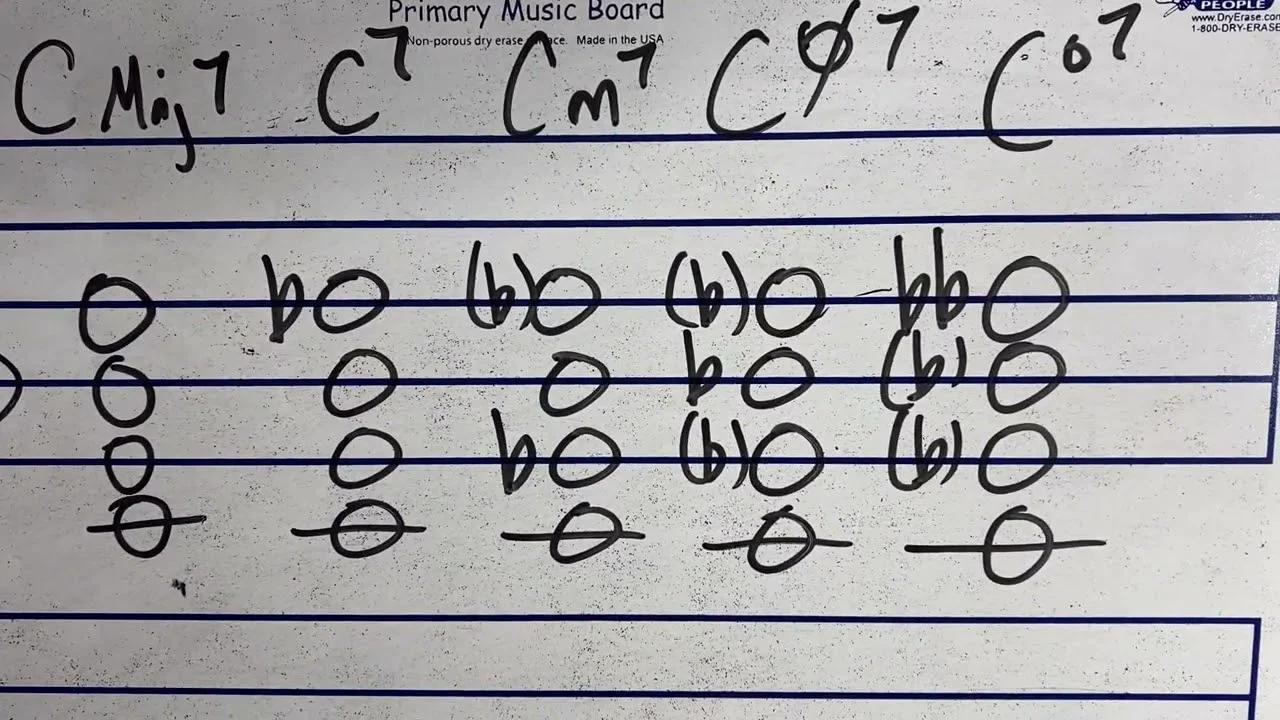 Primary Music Board
PEOPLE
Non-porous dry erase Made in the USA
www.DryErase.com
1-800-DRY-ERASE
C Maj7 C7 Cm7 Cø7 Co7
b (b) (b) bb
b (b)
b (b) (b)